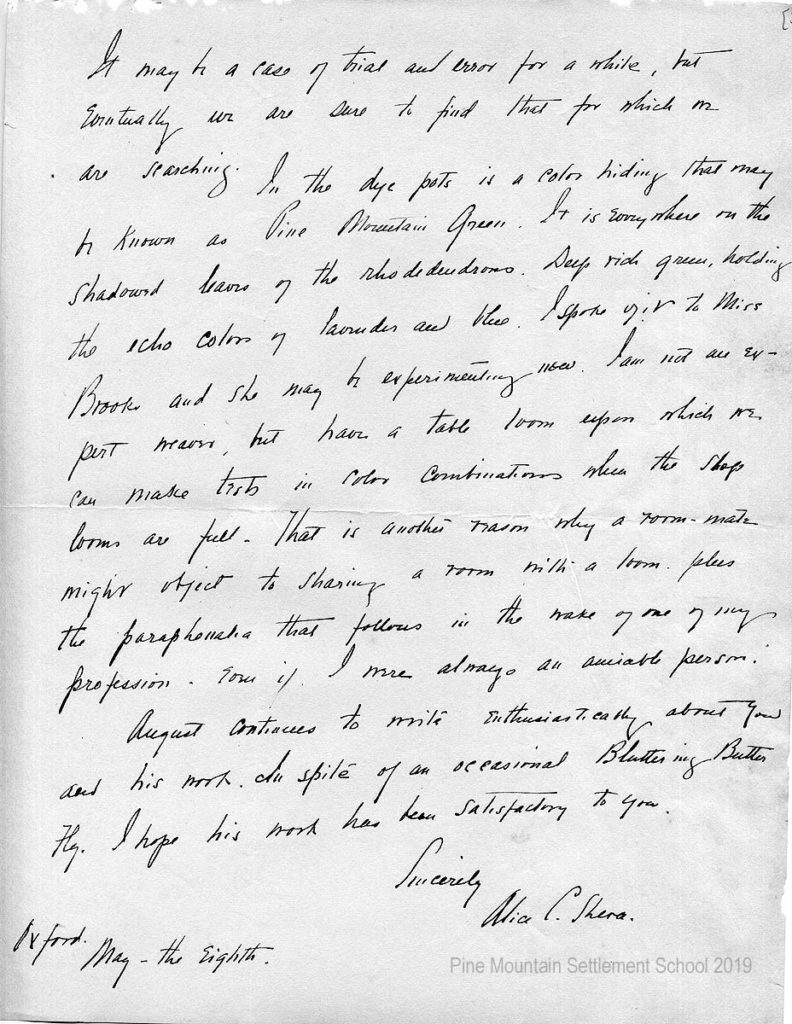 It may be a case of trial and error for a while, but
Eventually we are sure to find that for which we
are searching. In the dye pots is a color hiding that may
be Known as Pine Mountain Green. It is Everywhere on the
shadowed leaves of the rhododendrons. Deep rich green, holding
the echo colors of lavender and blue. I spoke of it to Miss
Brooks and she may be experimenting now. I am not an Ex-
pert weaver, but have a table loom upon which we
can make tests in color combinations when the shop
looms are full - That is another reason why a room-mate
might object to sharing a room with a loom. plus
the paraphenalia that follows in the wake of one of my
profession. Even if I were always an amiable person.
August continues to write Enthusiastically about you
and his work. In spite of an occasional Bluttering Butter
Fly. I hope his work has been satisfactory to you.
Sincerely
Alice C. Shera.
Oxford.
May - the Eighth.
Pine Mountain Settlement School 2019